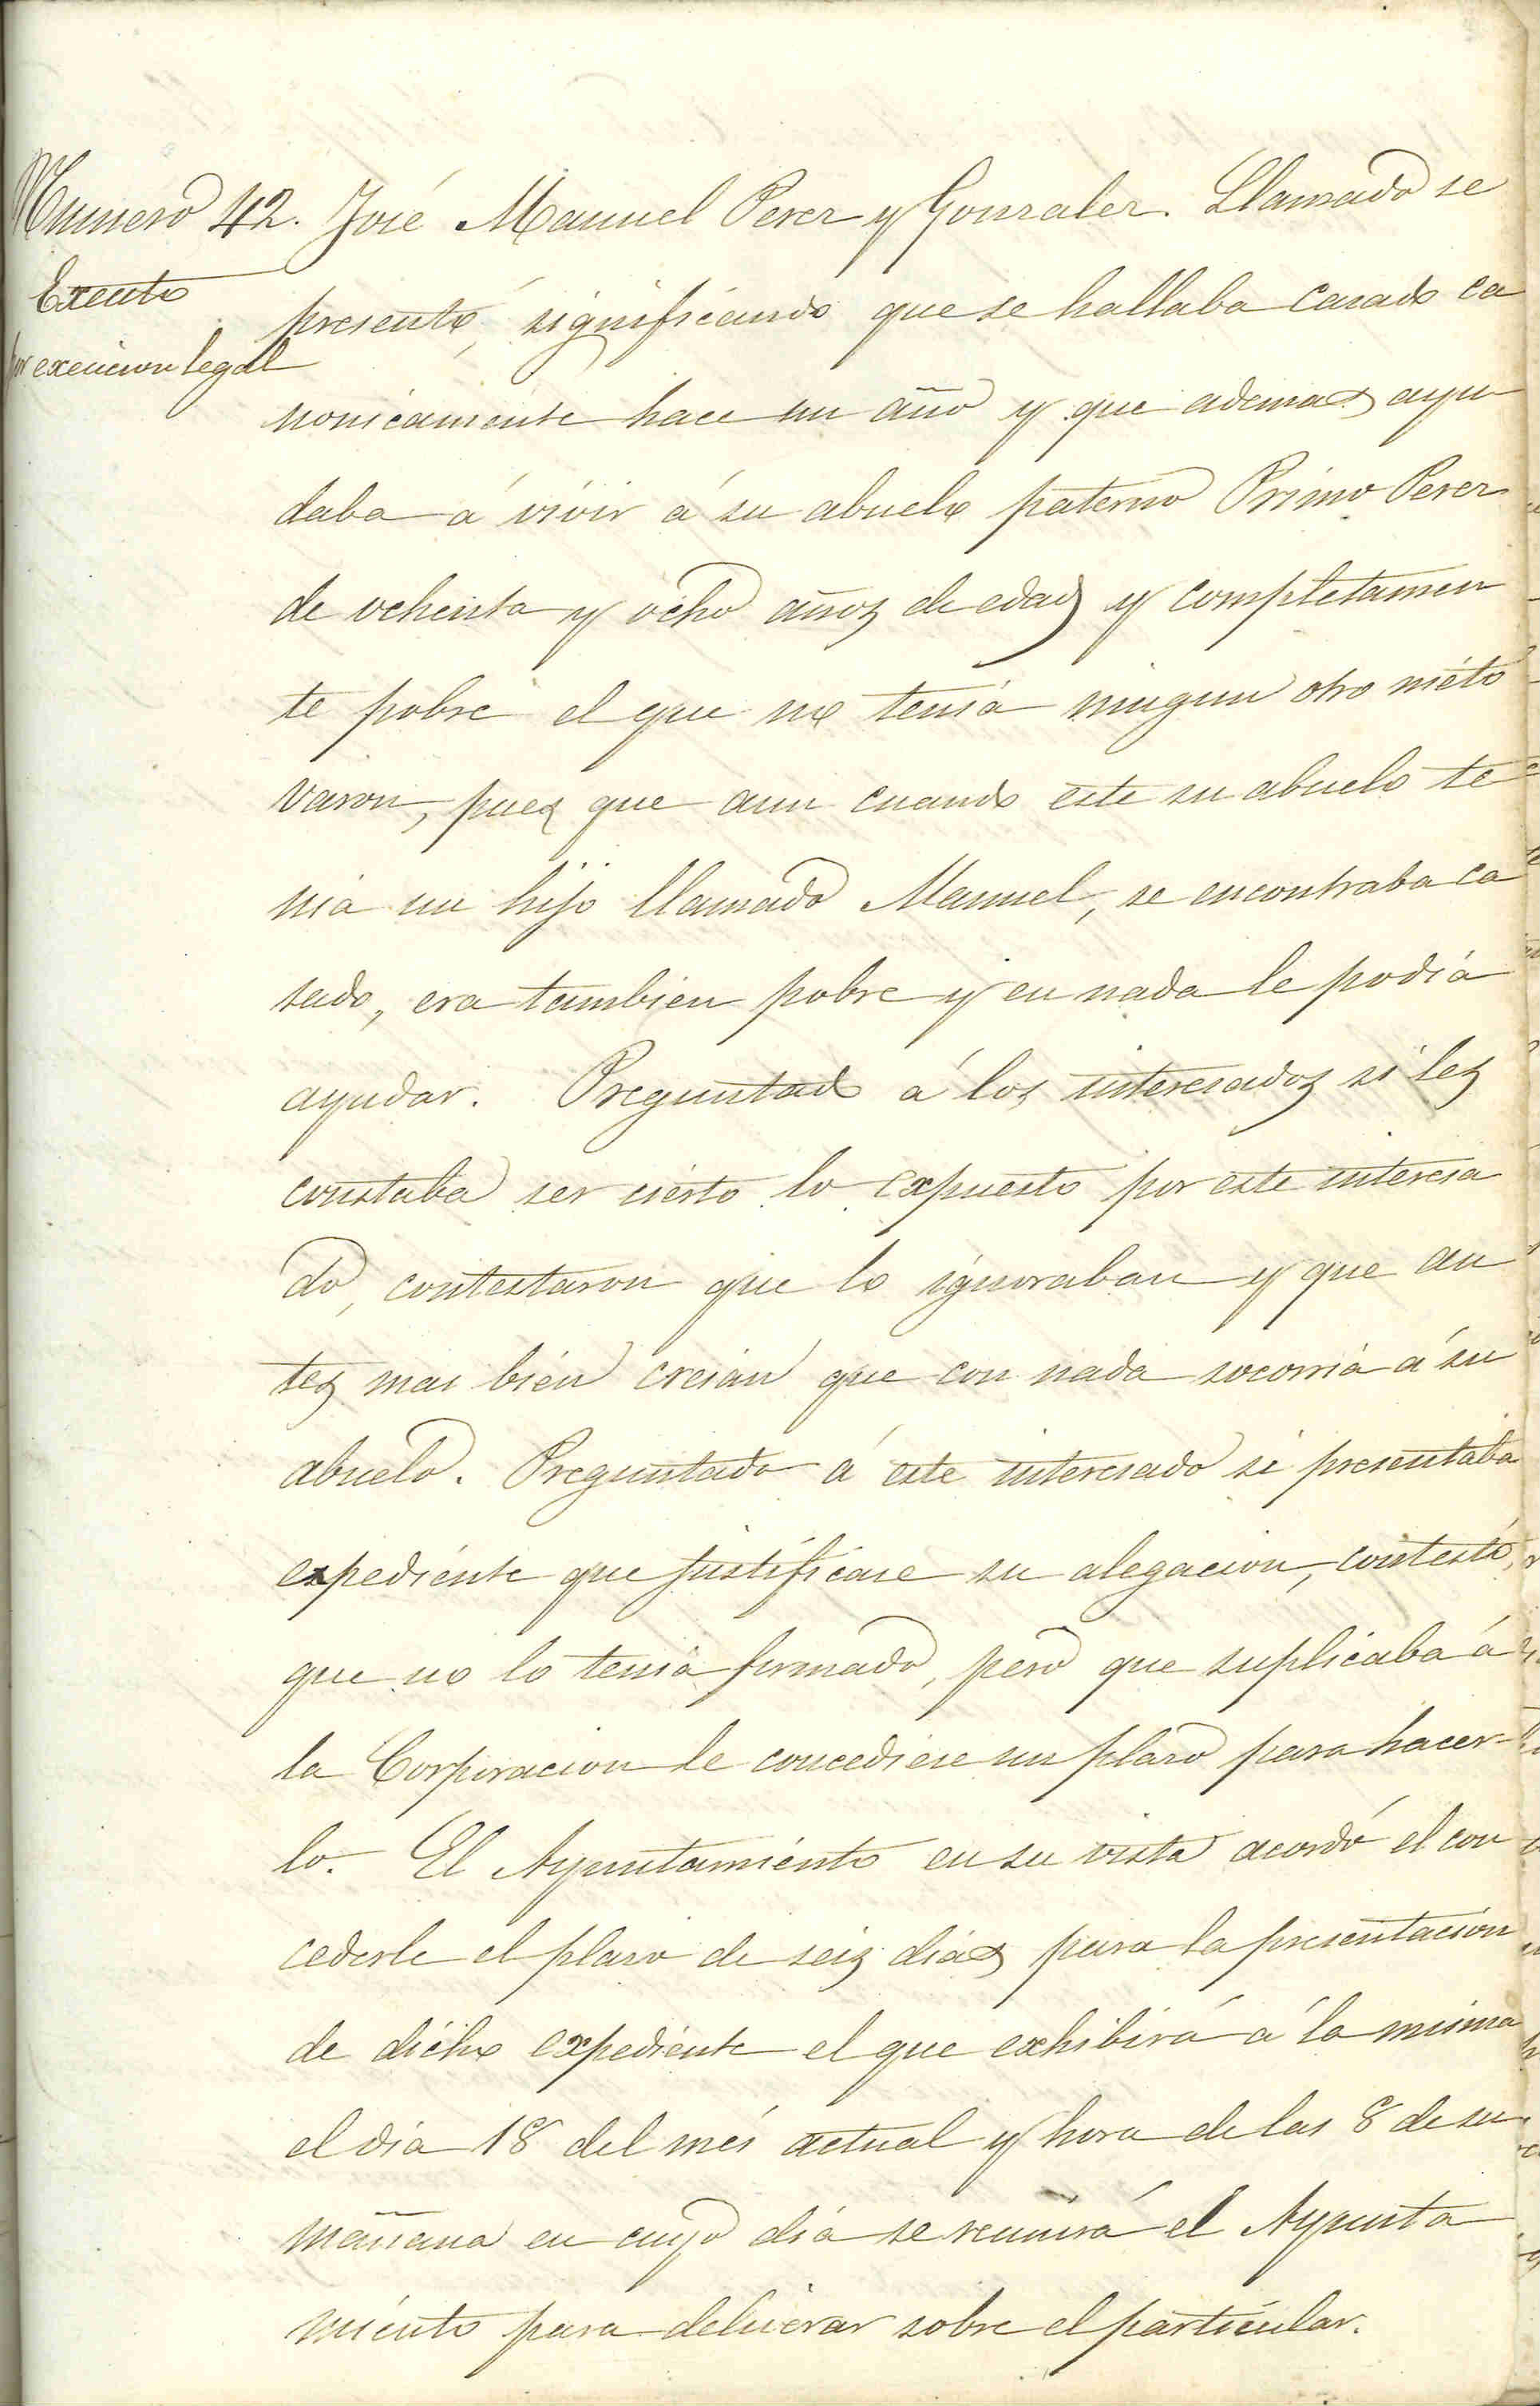 Numero 42. José Manuel Perez y Gonzalez. Llamado se
Exento
presentó, significando que se hallaba casado ca
por exencion legal
nonicamente hace un año y que ademas ayu
daba á vivir á su abuelo paterno Primo Perez
de ochenta y ocho años de edad y completamen
te pobre el que no tenia ningun otro nieto
varon, pues que aun cuando este su abuelo te
nia un hijo llamado Manuel, se encontraba ca
sado, era tambien pobre y en nada le podia
ayudar. Preguntado á los interesados si les
constaba ser cierto lo expuesto por este interesa
do, contestaron que lo ignoraban y que an
tes mas bien creian que con nada socorria á su
abuelo. Preguntado á este interesado si presentaba
expediente que justificase su alegacion, contestó,
que no lo tenia formado, pero que suplicaba á
la Corporacion le concediese un plazo para hacer
lo. El Ayuntamiento en su vista acordó el con
cederle el plazo de seis dias para la presentacion
de dicho expediente el que exhibirá á la misma
el dia 18 del més actual y hora de las 8 de su
mañana en cuyo dia se reunirá el Ayunta
miento para deliverar sobre el particular.